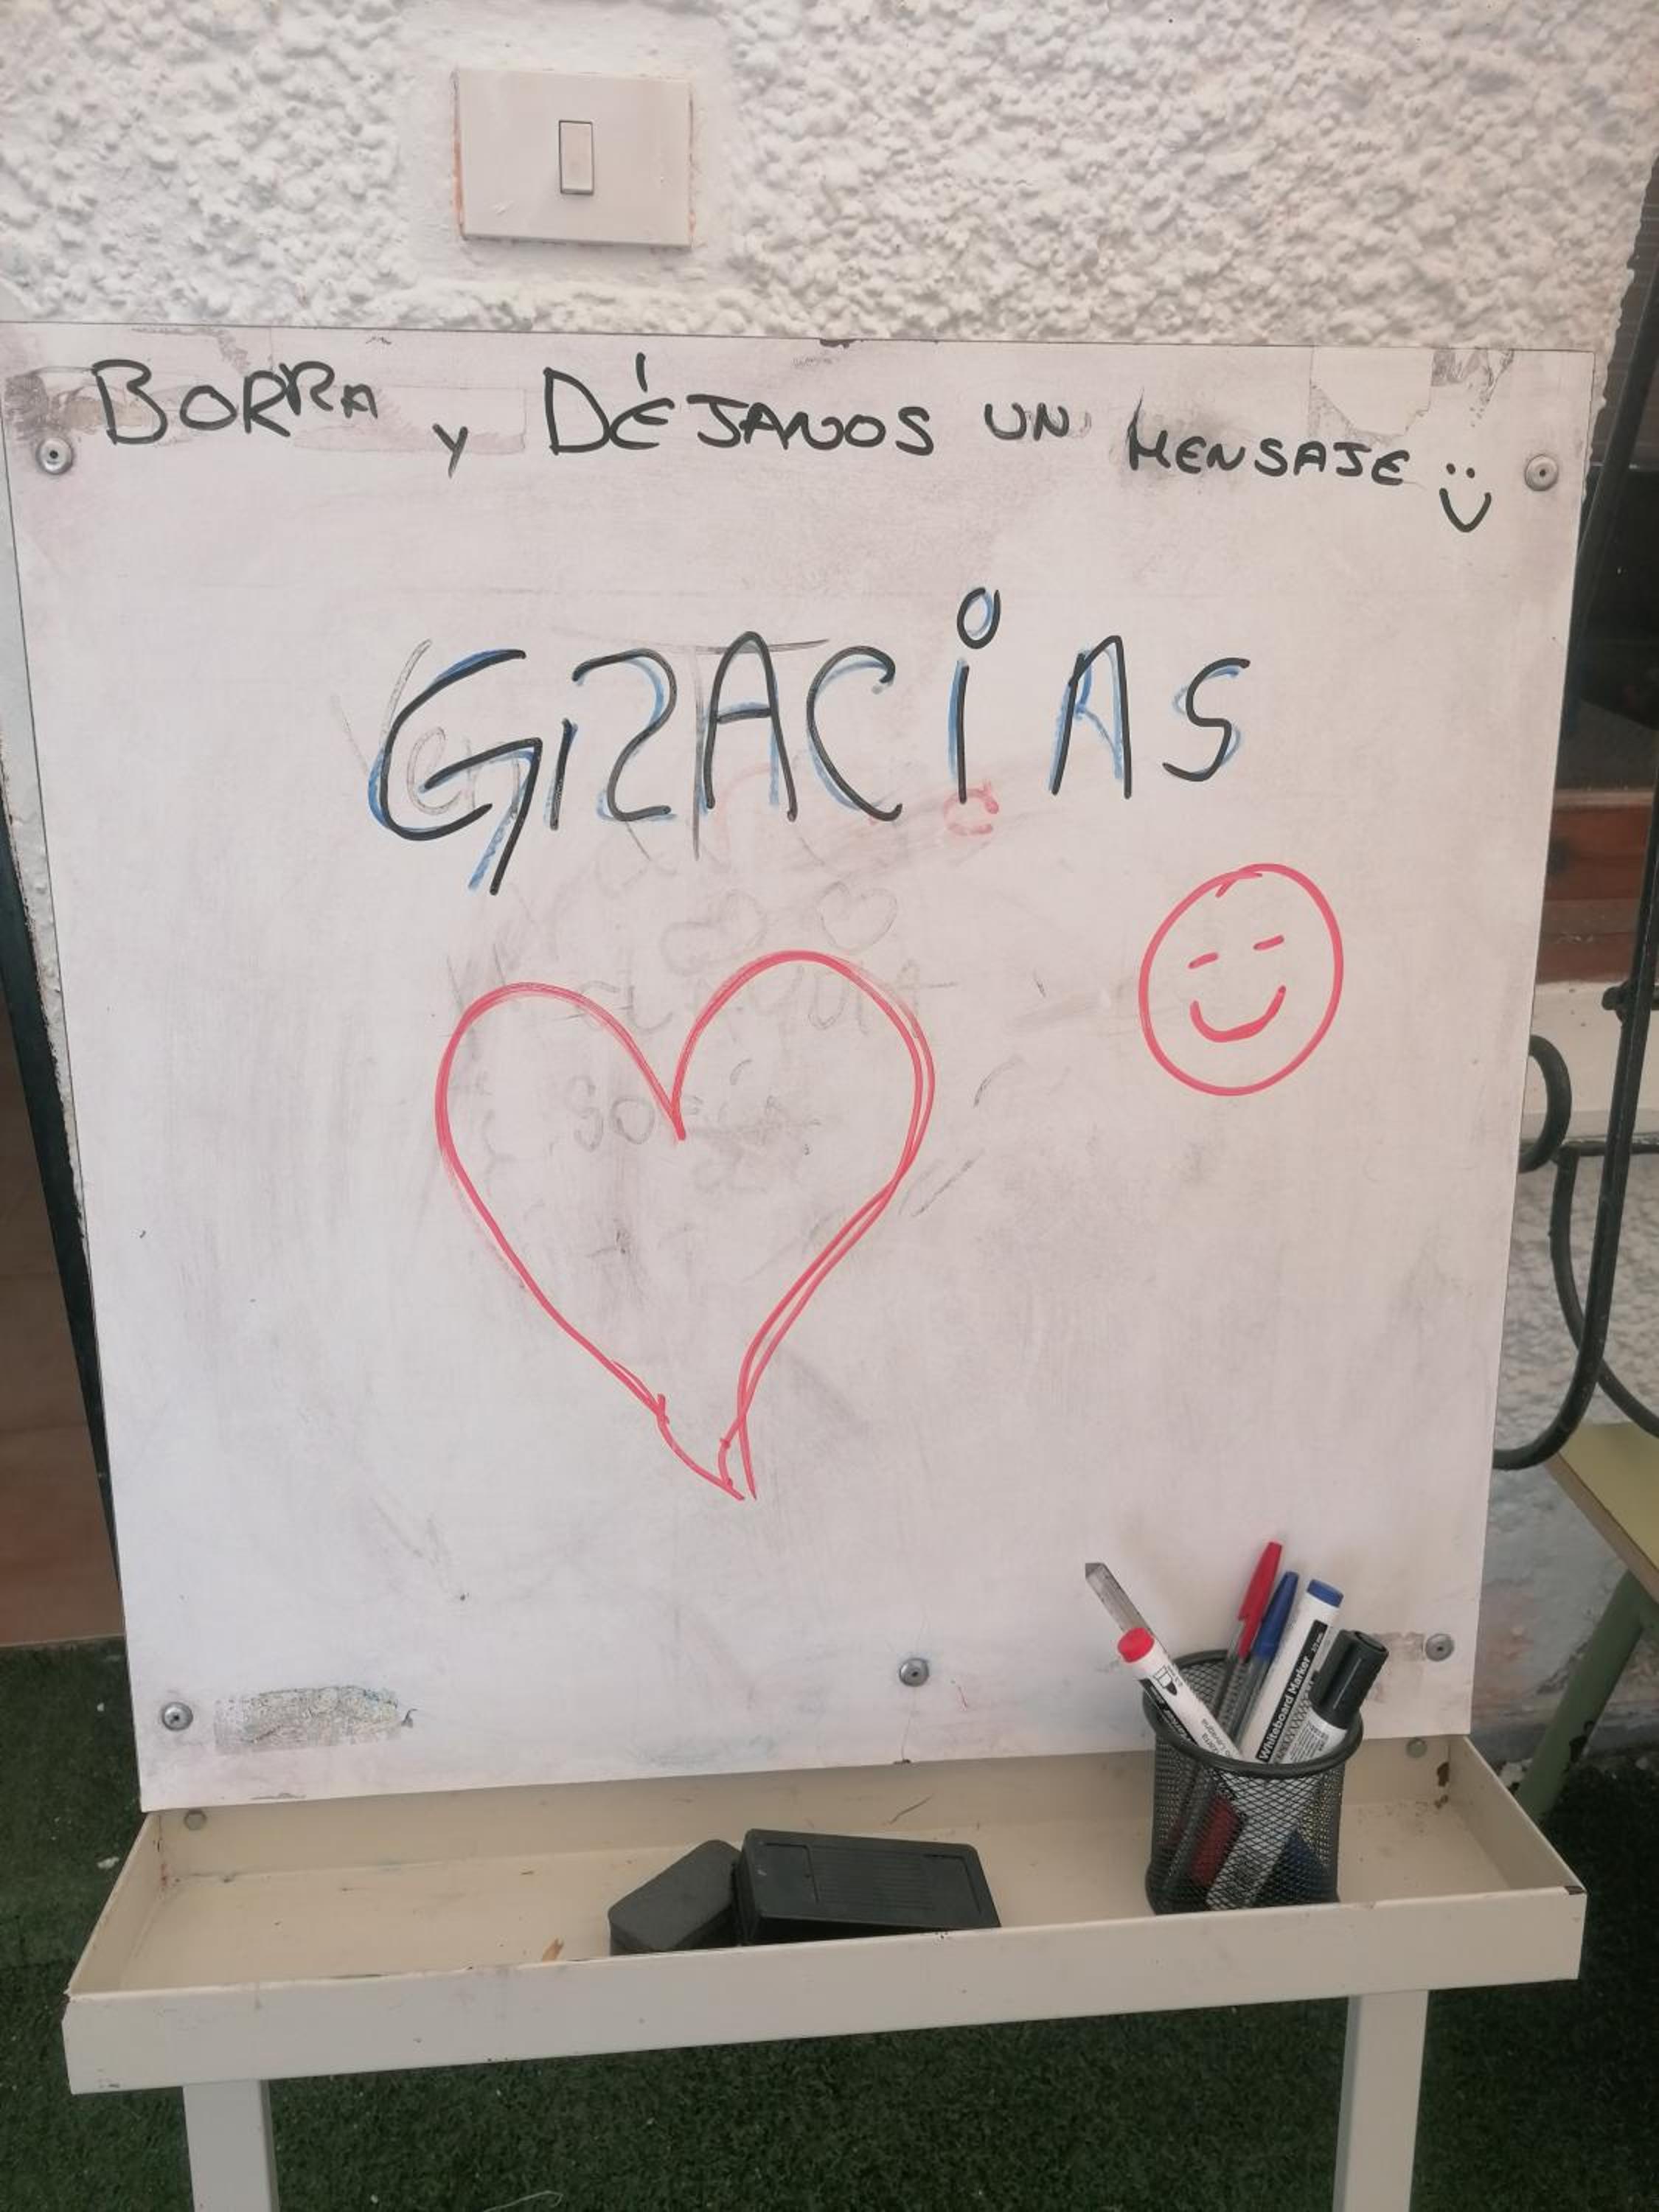 BORRA y DÉJANOS UN MENSAJE :)
GRACiAS
Whiteboard Marker